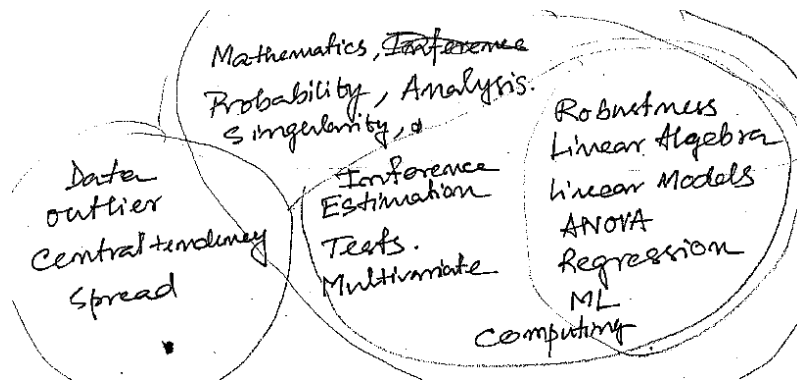 Mathematics, Inference
Probability, Analysis.
Singularity,
Data
outlier
Central tendency
Spread
Inference
Estimation
Tests.
Multivariate
Robustness
Linear Algebra
Linear Models
ANOVA
Regression
ML
Computing